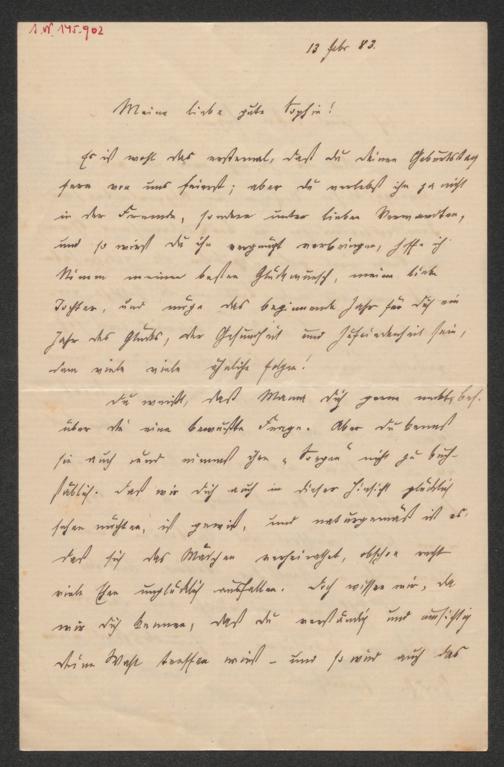 I.N. 145.902
13 Febr 83.
Meine liebe gute Sophie!
Es ist wohl das erstemal, daß du deinen Geburtstag
fern von uns feierst; aber du verlebst ihn ja nicht
in der Fremde, sondern unter lieben Verwandten,
und so wirst du ihn vergnügt verbringen, hoffe ich
Nimm meinen besten Glückwunsch, meine liebe
Tochter, und möge das beginnende Jahr für dich ein
Jahr des Glücks, der Gesundheit und Zufriedenheit sein,
dem viele viele ähnliche folgen!
Du weißt, daß Mama dich gerne
über die eine bewußte Frage. Aber du kennst
sie auch und nimmst ihre „Sorgen" nicht zu buch-
stäblich. Daß wir dich auch in dieser Hinsicht glücklich
sehen möchten, ist gewiß, und naturgemäß ist es
daß sich das Mädchen verheirathet, obschon recht
viele Ehen unglücklich ausfallen. Doch wissen wir, da
wir dich kennen, daß du verständig und umsichtig
deine Wahl treffen wirst – und so wird auch das